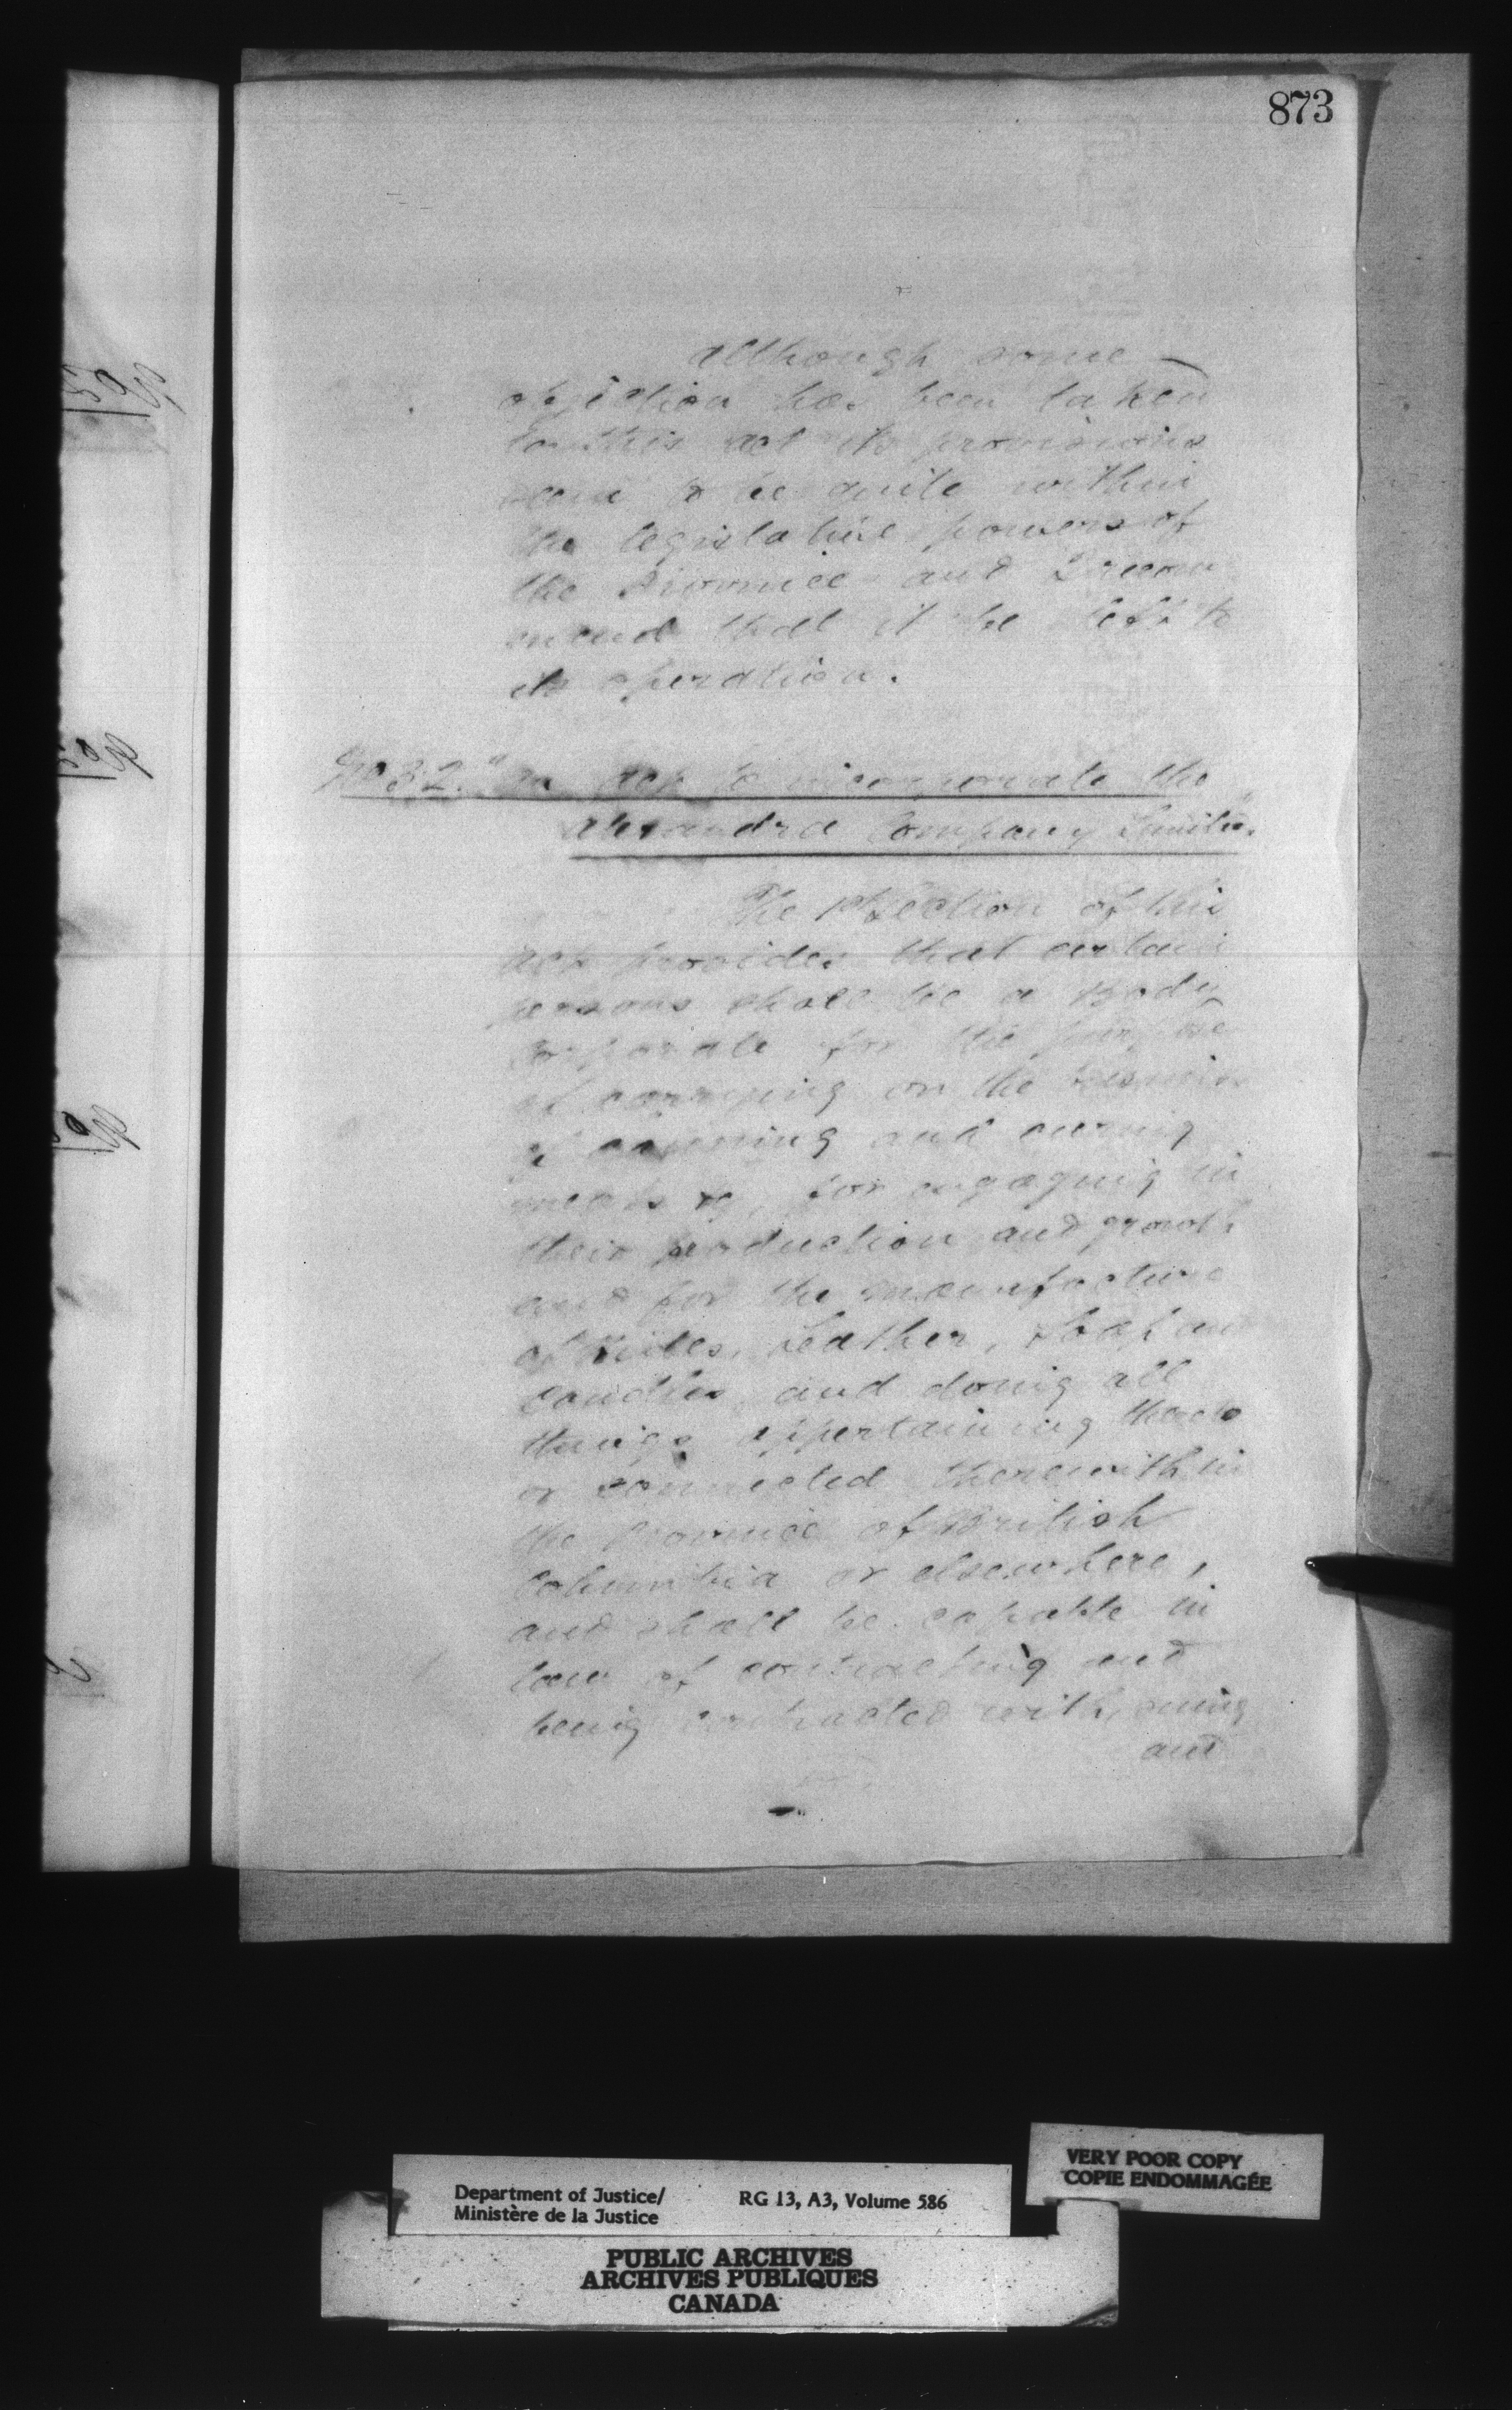 873
Although some
objection has been taken
to this act its provisions
seem to be quite within
the legislative powers of
the Province and I recom
mend that it be left to
its operation.
No 32. "An Act to incorporate the
Alexandra Company Limited."
The 1st Section of this
Act provides that certain
persons shall be a Body
Corporate for the purpose
of carrying on the business
of canning and curing
meats &c, for engaging in
their production and growth
and for the manufacture
of Hides, Leather, Soap and
Candles, and doing all
things appertaining thereto
or connected therewith in
the Province of British
Columbia or elsewhere,
and shall be capable in
law of contracting and
being contracted with, suing
and
Department of Justice/
Ministère de la Justice
RG 13, A3, Volume 586
VERY POOR COPY
COPIE ENDOMMAGÉE
PUBLIC ARCHIVES
ARCHIVES PUBLIQUES
CANADA